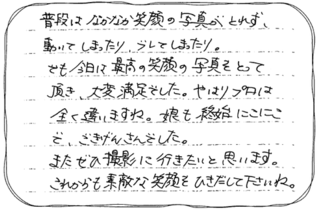 普段はなかなか笑顔の写真がとれず、
動いてしまったり、ブレてしまったり。
でも今日は最高の笑顔の写真をとって
頂き、大変満足でした。やはりプロは
全く違いますね。娘も終始にこにこ
で、ごきげんさんでした。
またぜひ撮影に行きたいと思います。
これからも素敵な笑顔をひきだして下さいね。